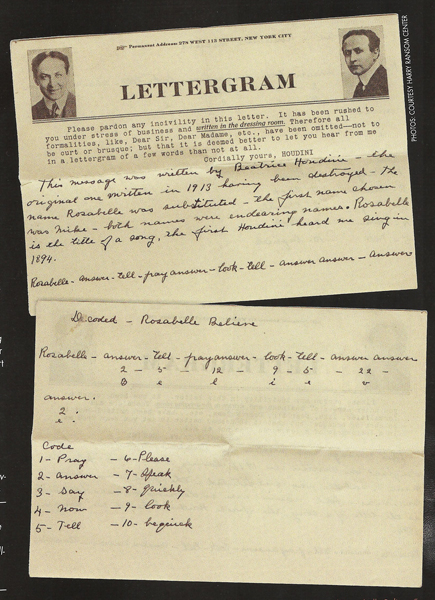 Permanent Address: 278 WEST 113 STREET, NEW YORK CITY
LETTERGRAM
Please pardon any incivility in this letter. It has been rushed to
you under stress of business and written in the dressing room. Therefore all
formalities, like, Dear Sir, Dear Madame, etc., have been omitted—not to
be curt or brusque; but that it is deemed better to let you hear from me
in a lettergram of a few words than not at all.
Cordially yours, HOUDINI
This message was written by Beatrice Houdini - the
original one written in 1913 having been destroyed - the
name Rosabelle was substituted - the first name chosen
was Mike - both names were endearing names. Rosabelle
is the title of a song, the first Houdini heard me sing in
1894.
Rosabelle - answer - tell - pray answer - look - tell - answer answer - answer
PHOTOS: COURTESY HARRY RANSOM CENTER
Decoded - Rosabelle Believe
Rosabelle - answer - tell - pray answer - look - tell - answer answer
2 - 5 - 12 - 9 - 5 - 22 -
B e l i e v
answer.
2 .
e .
Code
1 - Pray - 6 - Please
2 - answer - 7 - Speak
3 - Say - 8 - Quickly
4 - Now - 9 - look
5 - Tell - 10 -